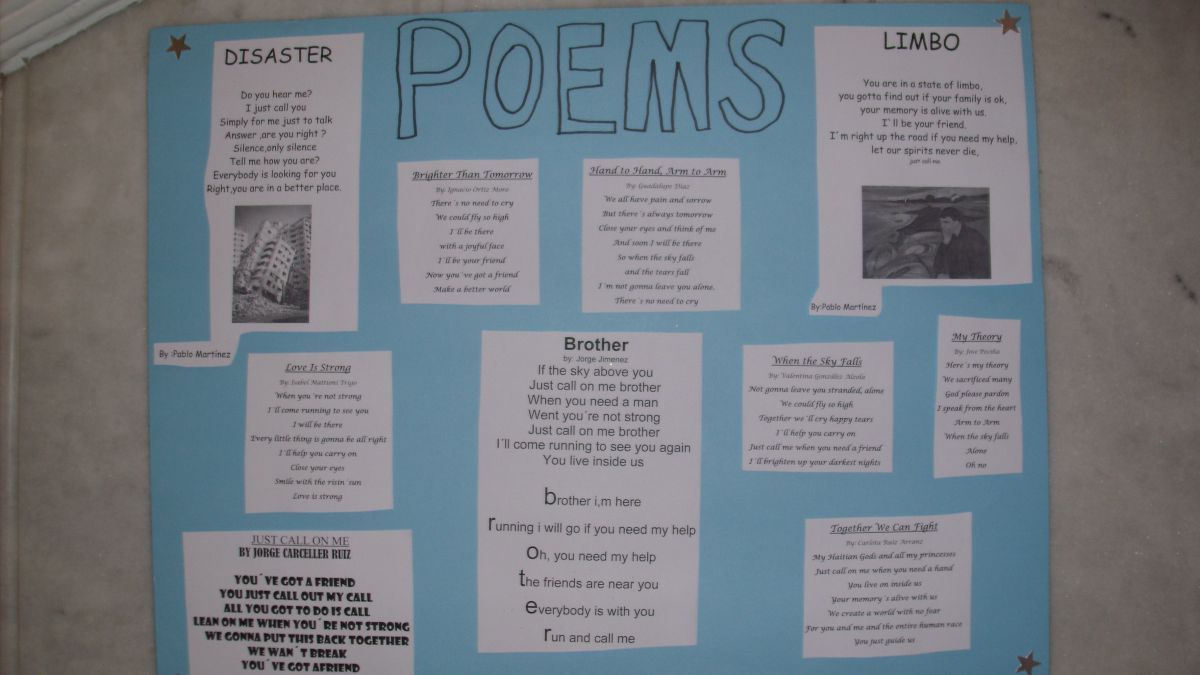 POEMS
DISASTER
Do you hear me?
I just call you
Simply for me just to talk
Answer ,are you right ?
Silence,only silence
Tell me how you are?
Everybody is looking for you
Right,you are in a better place.
By :Pablo Martinez
Brighter Than Tomorrow
By: Ignacio Ortiz Moro
There´s no need to cry
We could fly so high
I´ll be there
with a joyful face
I´ll be your friend
Now you´ve got a friend
Make a better world
Hand to Hand, Arm to Arm
By: Guadalupe Diaz
We all have pain and sorrow
But there´s always tomorrow
Close your eyes and think of me
And soon I will be there
So when the sky falls
and the tears fall
I´m not gonna leave you alone.
There´s no need to cry
LIMBO
You are in a state of limbo,
you gotta find out if your family is ok,
your memory is alive with us.
I´ll be your friend.
I´m right up the road if you need my help,
let our spirits never die,
just call me.
By:Pablo Martínez
Love Is Strong
By: Isabel Mattioni Trigo
When you´re not strong
I´ll come running to see you
I will be there
Every little thing is gonna be all right
I´ll help you carry on
Close your eyes
Smile with the risin´sun
Love is strong
Brother
by: Jorge Jimenez
If the sky above you
Just call on me brother
When you need a man
Went you´re not strong
Just call on me brother
I´ll come running to see you again
You live inside us
brother i,m here
running i will go if you need my help
oh, you need my help
the friends are near you
everybody is with you
run and call me
When the Sky Falls
By: Valentina González
Not gonna leave you stranded, alone
We could fly so high
Together we´ll cry happy tears
I´ll help you carry on
Just call me when you need a friend
I´ll brighten up your darkest nights
My Theory
By: Jose
Here´s my theory
We sacrificed many
God please pardon
I speak from the heart
Arm to Arm
When the sky falls
Alone
Oh no
JUST CALL ON ME
BY JORGE CARCELLER RUIZ
YOU´VE GOT A FRIEND
YOU JUST CALL OUT MY CALL
ALL YOU GOT TO DO IS CALL
LEAN ON ME WHEN YOU´RE NOT STRONG
WE GONNA PUT THIS BACK TOGETHER
WE WAN´T BREAK
YOU´VE GOT AFRIEND
Together We Can Fight
By: Carlota Ruiz Arranz
My Haitian Gods and all my princesses
Just call on me when you need a hand
You live on inside us
Your memory´s alive with us
We create a world with no fear
For you and me and the entire human race
You just guide us